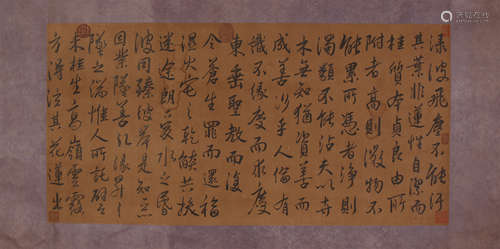 渌波飛塵不能汙
其葉非蓮性自潔而
桂質本貞良由所
附者高則微物不
能累所憑者淨則
濁類不能沾夫以卉
木無知猶資善而
成善況乎人倫有
識不緣慶而求慶
東垂聖教缺而復
全蒼生罪而還福
濕火宅之乾燄共拔
迷途朗愛水之昏
波同臻彼岸是知惡
因業墜善以緣昇昇
墜之端惟人所託譬
夫桂生高嶺雲露
方得泫其花蓮出